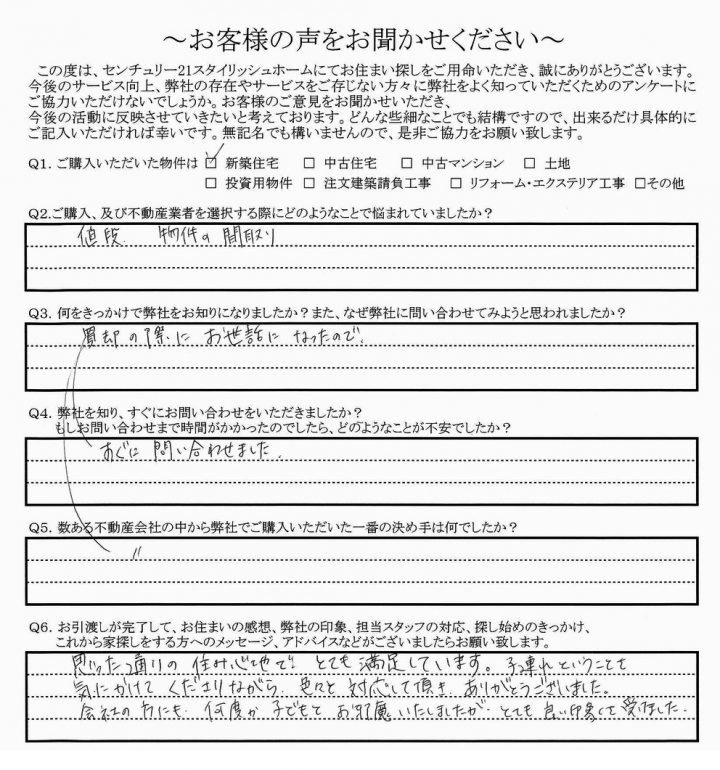 ～お客様の声をお聞かせください～
この度は、センチュリー21スタイリッシュホームにてお住まい探しをご用命いただき、誠にありがとうございます。
今後のサービス向上、弊社の存在やサービスをご存じない方々に弊社をよく知っていただくためのアンケートに
ご協力いただけないでしょうか。お客様のご意見をお聞かせいただき、
今後の活動に反映させていきたいと考えております。どんな些細なことでも結構ですので、出来るだけ具体的に
ご記入いただければ幸いです。無記名でも構いませんので、是非ご協力をお願い致します。
Q1. ご購入いただいた物件は ☑ 新築住宅 □ 中古住宅 □ 中古マンション □ 土地
□ 投資用物件 □ 注文建築請負工事 □ リフォーム・エクステリア工事 □その他
Q2.ご購入、及び不動産業者を選択する際にどのようなことで悩まれていましたか？
値段 物件の間取り
Q3. 何をきっかけで弊社をお知りになりましたか？また、なぜ弊社に問い合わせてみようと思われましたか？
買却の際に お世話に なったので。
Q4. 弊社を知り、すぐにお問い合わせをいただきましたか？
もしお問い合わせまで時間がかかったのでしたら、どのようなことが不安でしたか？
すぐに 問い合わせました。
Q5. 数ある不動産会社の中から弊社でご購入いただいた一番の決め手は何でしたか？
〃
Q6. お引渡しが完了して、お住まいの感想、弊社の印象、担当スタッフの対応、探し始めのきっかけ、
これから家探しをする方へのメッセージ、アドバイスなどがございましたらお願い致します。
思った通りの 住み心地で とても 満足しています。子連れということも
気にかけて くださりながら 色々と 対応して頂き ありがとうございました。
会社の方にも 何度か 子どもと お邪魔いたしましたが とても 良い印象を受けました。